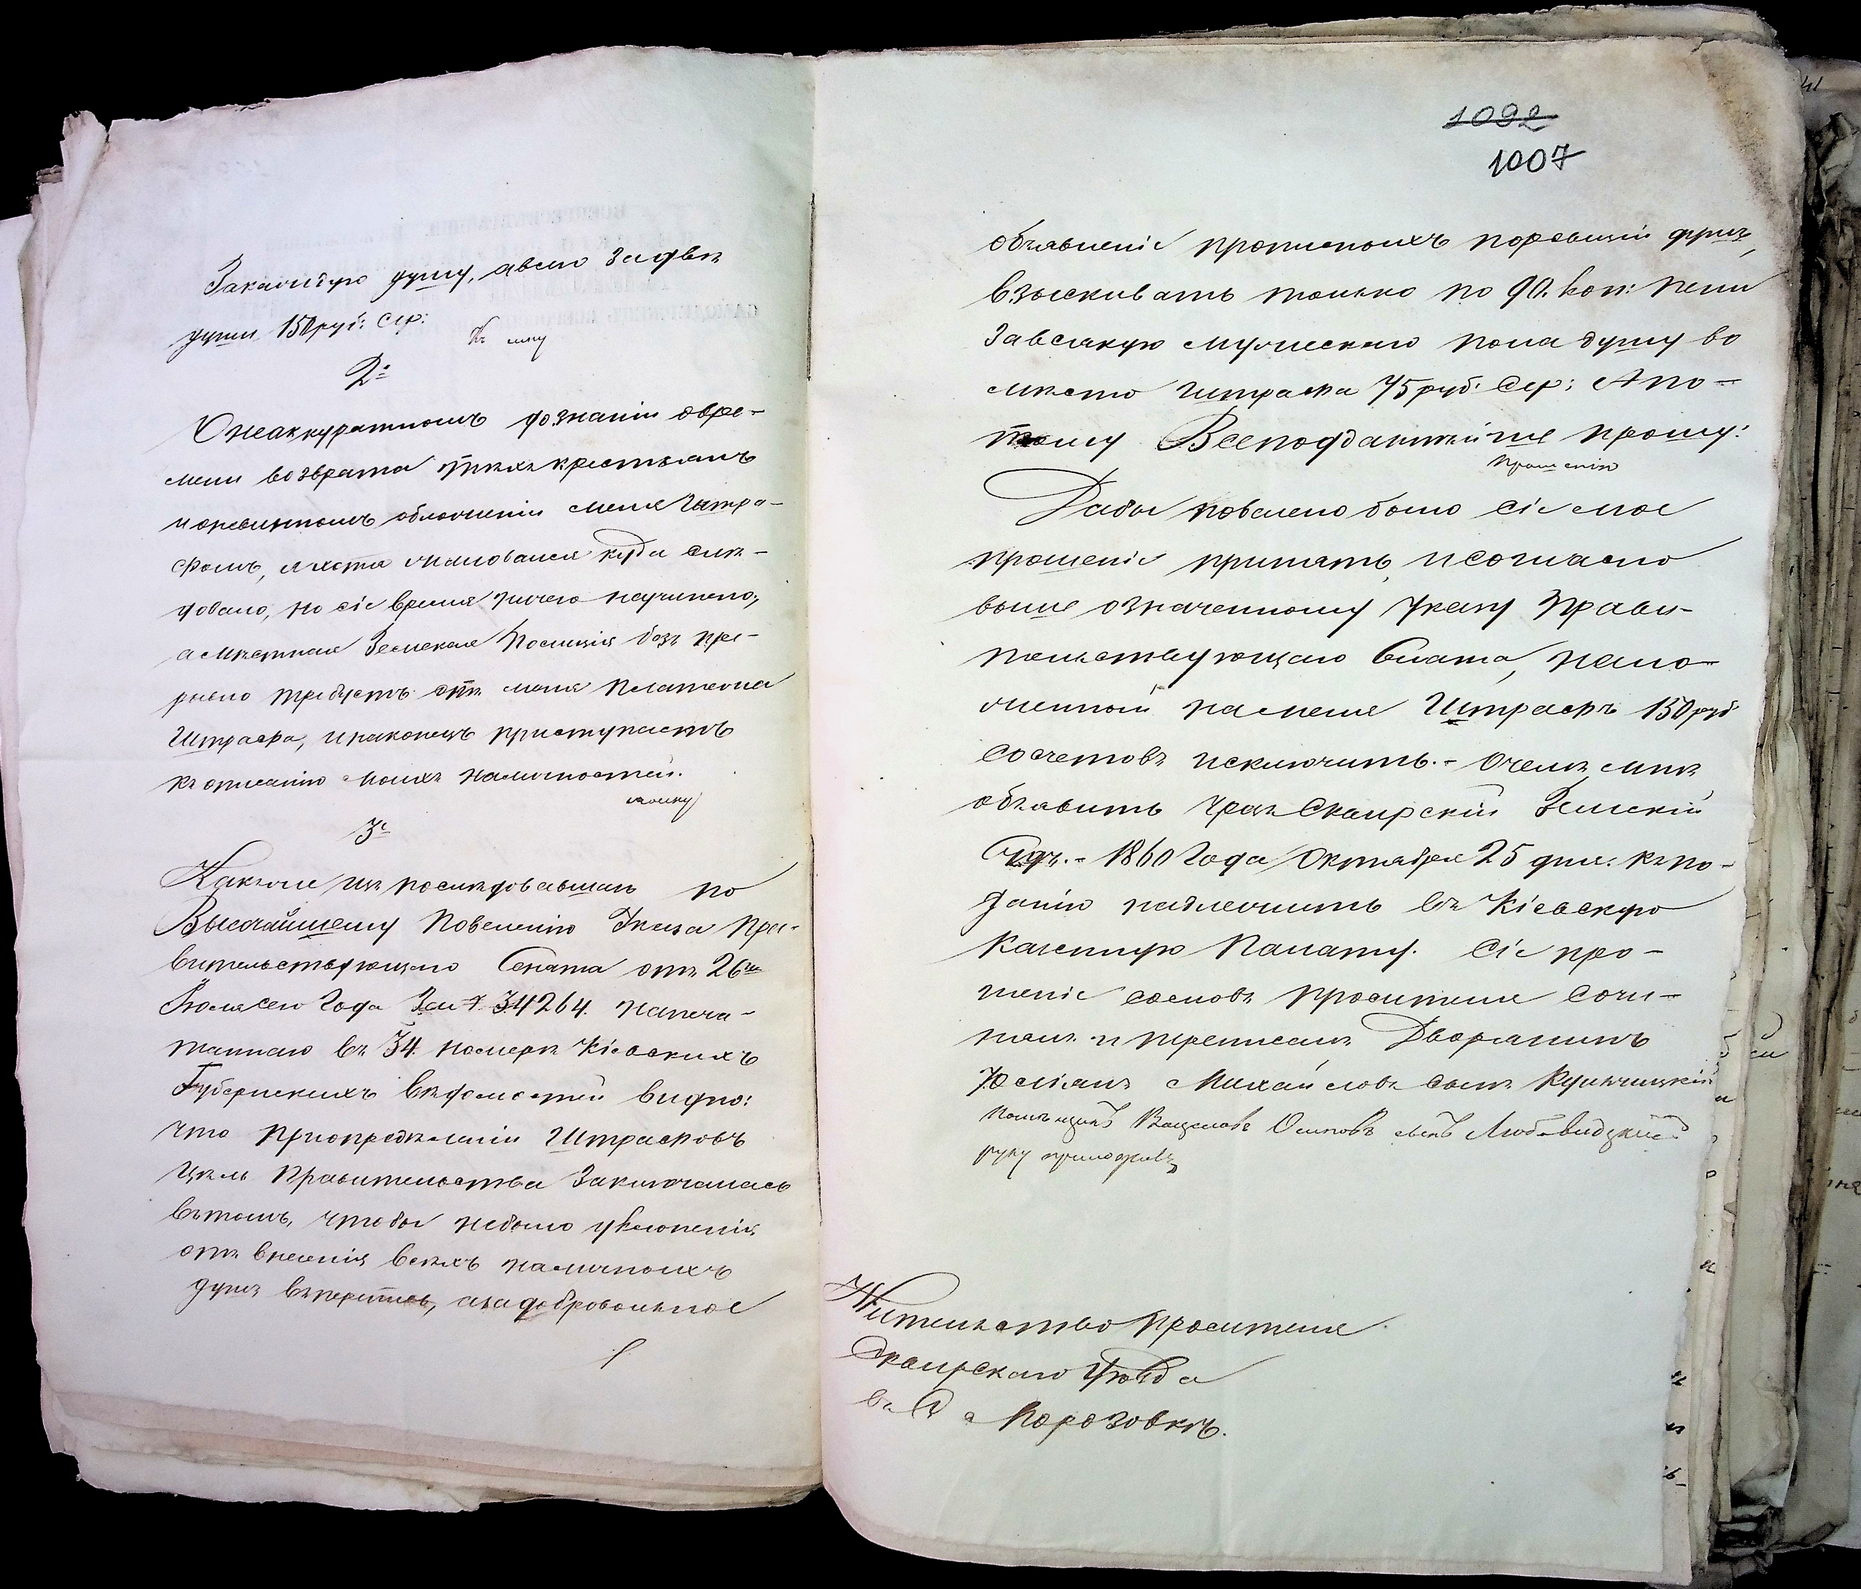 Закаждую душу, авсего Задвѣ
души 150 руб: Сер:
Къ сему
2е
Онеаккуратномъ дознаніи овре-
мени возврата тѣхъ крестьянъ
иопевинномъ обложеніи меня Штра-
фомъ, яхотя жаловался куда слѣ-
довало, но сіе время ничего неучинено,
аместная Земская Полиція безъ пре-
рывно требуетъ отъ меня платежа
Штрафа, инаконецъ приступаетъ
къ описанію моихъ наличностей.
моему
3е
Какъже изъ последовавшаго по
Высочайшему Повеленію Указа Пра-
вительствующаго Сената отъ 26го
Іюля сего Года За № 34264. напеча-
таннаго въ 34. номерѣ Кіевскихъ
Губернскихъ вѣдомостей видно:
что приопределеніи Штрафовъ
Цель Правительства Заключалась
въ томъ, чтобы небыло уклоненія
отъ внесенія всѣхъ наличныхъ
душъ въперепись, аза добровольное
1092
1007
объявленіе прописныхъ поревизіи душъ,
взыскивать только по 90. коп: пени
Завсякую мужескаго пола душу во
место Штрафа 75 руб: Сер: Апо-
тому Всеподданнѣйше прошу:
Прошенію
Дабы повелено было Сіе мое
прошеніе принять, исогласно
выше означенному Указу Прави-
тельствующаго Сената, нало-
женный наменя Штрафъ 150 руб
сосчетовъ исключить. - Очемъ мнѣ
объявить чрезъ Сквирскій Земскій
Судъ. - 1860 Года Октября 25 дня. Къпо-
данію надлежитъ въ Кіевскую
Казенную Палату. Сіе про-
шеніе сословъ просителя сочи-
нялъ и переписалъ Дворянинъ
Юліанъ Михайловъ сынъ
Помѣщикъ Вацлавъ Осиповъ сынъ Любовидзкій
руку приложилъ
Жительство просителя
Сквирскаго Уѣзда
въ С Морозовкѣ.